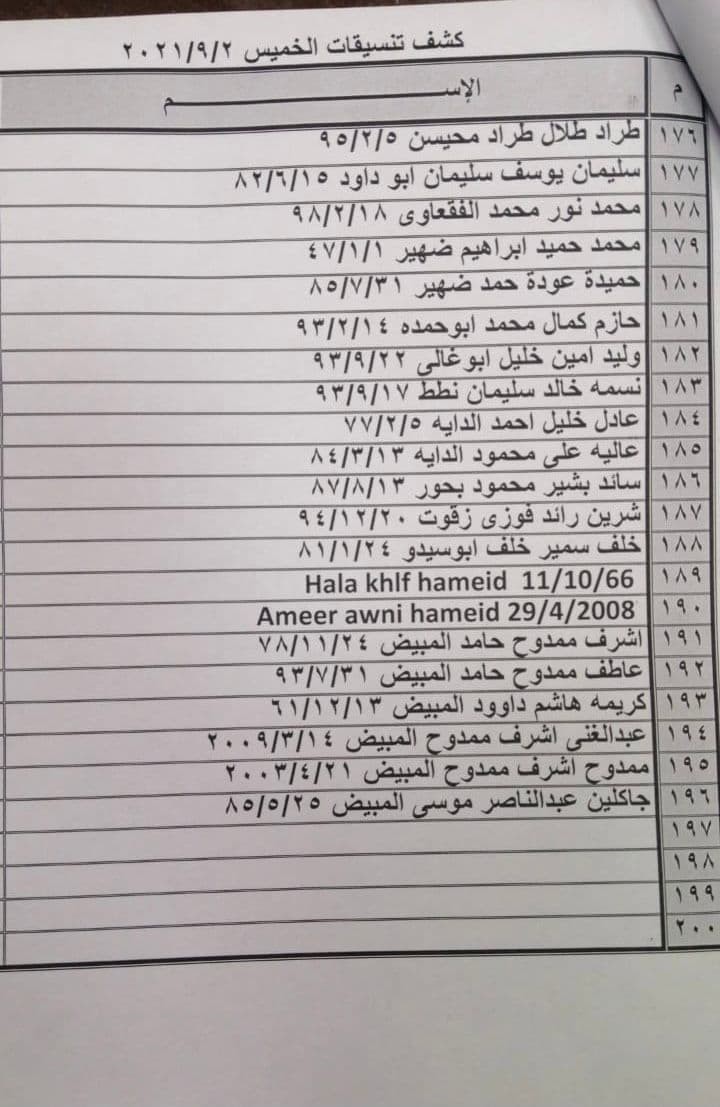 كشف تنسيقات الخميس ٢٠٢١/٩/٢
م الإســـــــــم
١٧٦ طراد طلال طراد محيسن ٩٥/٢/٥
١٧٧ سليمان يوسف سليمان ابو داود ٨٢/٦/١٥
١٧٨ محمد نور محمد الفقعاوى ٩٨/٢/١٨
١٧٩ محمد حميد ابراهيم ضهير ٤٧/١/١
١٨٠ حميدة عودة حمد ضهير ٨٥/٧/٣١
١٨١ حازم كمال محمد ابوحمده ٩٣/٢/١٤
١٨٢ وليد امين خليل ابوغالى ٩٣/٩/٢٢
١٨٣ نسمه خالد سليمان نطط ٩٣/٩/١٧
١٨٤ عادل خليل احمد الدايه ٧٧/٢/٥
١٨٥ عاليه على محمود الدايه ٨٤/٣/١٣
١٨٦ سائد بشير محمود بحور ٨٧/٨/١٣
١٨٧ شرين رائد فوزى زقوت ٩٤/١٢/٢٠
١٨٨ خلف سمير خلف ابوسيدو ٨١/١/٢٤
١٨٩ Hala khlf hameid 11/10/66
١٩٠ Ameer awni hameid 29/4/2008
١٩١ اشرف ممدوح حامد المبيض ٧٨/١١/٢٤
١٩٢ عاطف ممدوح حامد المبيض ٩٣/٧/٣١
١٩٣ كريمه هاشم داوود المبيض ٦١/١٢/١٣
١٩٤ عبدالغنى اشرف ممدوح المبيض ٢٠٠٩/٣/١٤
١٩٥ ممدوح اشرف ممدوح المبيض ٢٠٠٣/٤/٢١
١٩٦ جاكلين عبدالناصر موسى المبيض ٨٥/٥/٢٥
١٩٧
١٩٨
١٩٩
٢٠٠